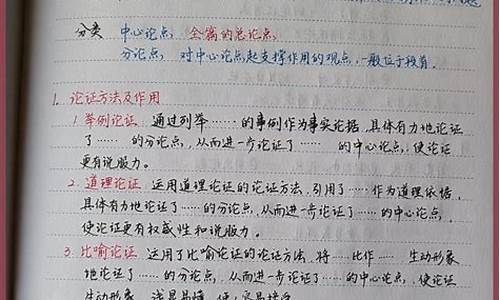 分类 中心论点：全篇的总论点
分论点：对中心论点起支撑作用的观点，一般位于段首.
1. 论证方法及作用
1 举例论证：通过列举……的事例作为事实论据，具体有力地论证
了……的分论点，从而进一步论证了……的中心论点，使论证
更有说服力。
2. 道理论证 运用道理论证的论证方法，引用了……作为道理依据，
具体有力地论证了……的分论点，从而进一步论证了……的中心论点，
使论证更有权威性和说服力。
3. 比喻论证 运用了比喻论证的论证方法，将……比作……生动形象
地论证了……的分论点，从而进一步论证了……的中心论点，使论证
生动形象